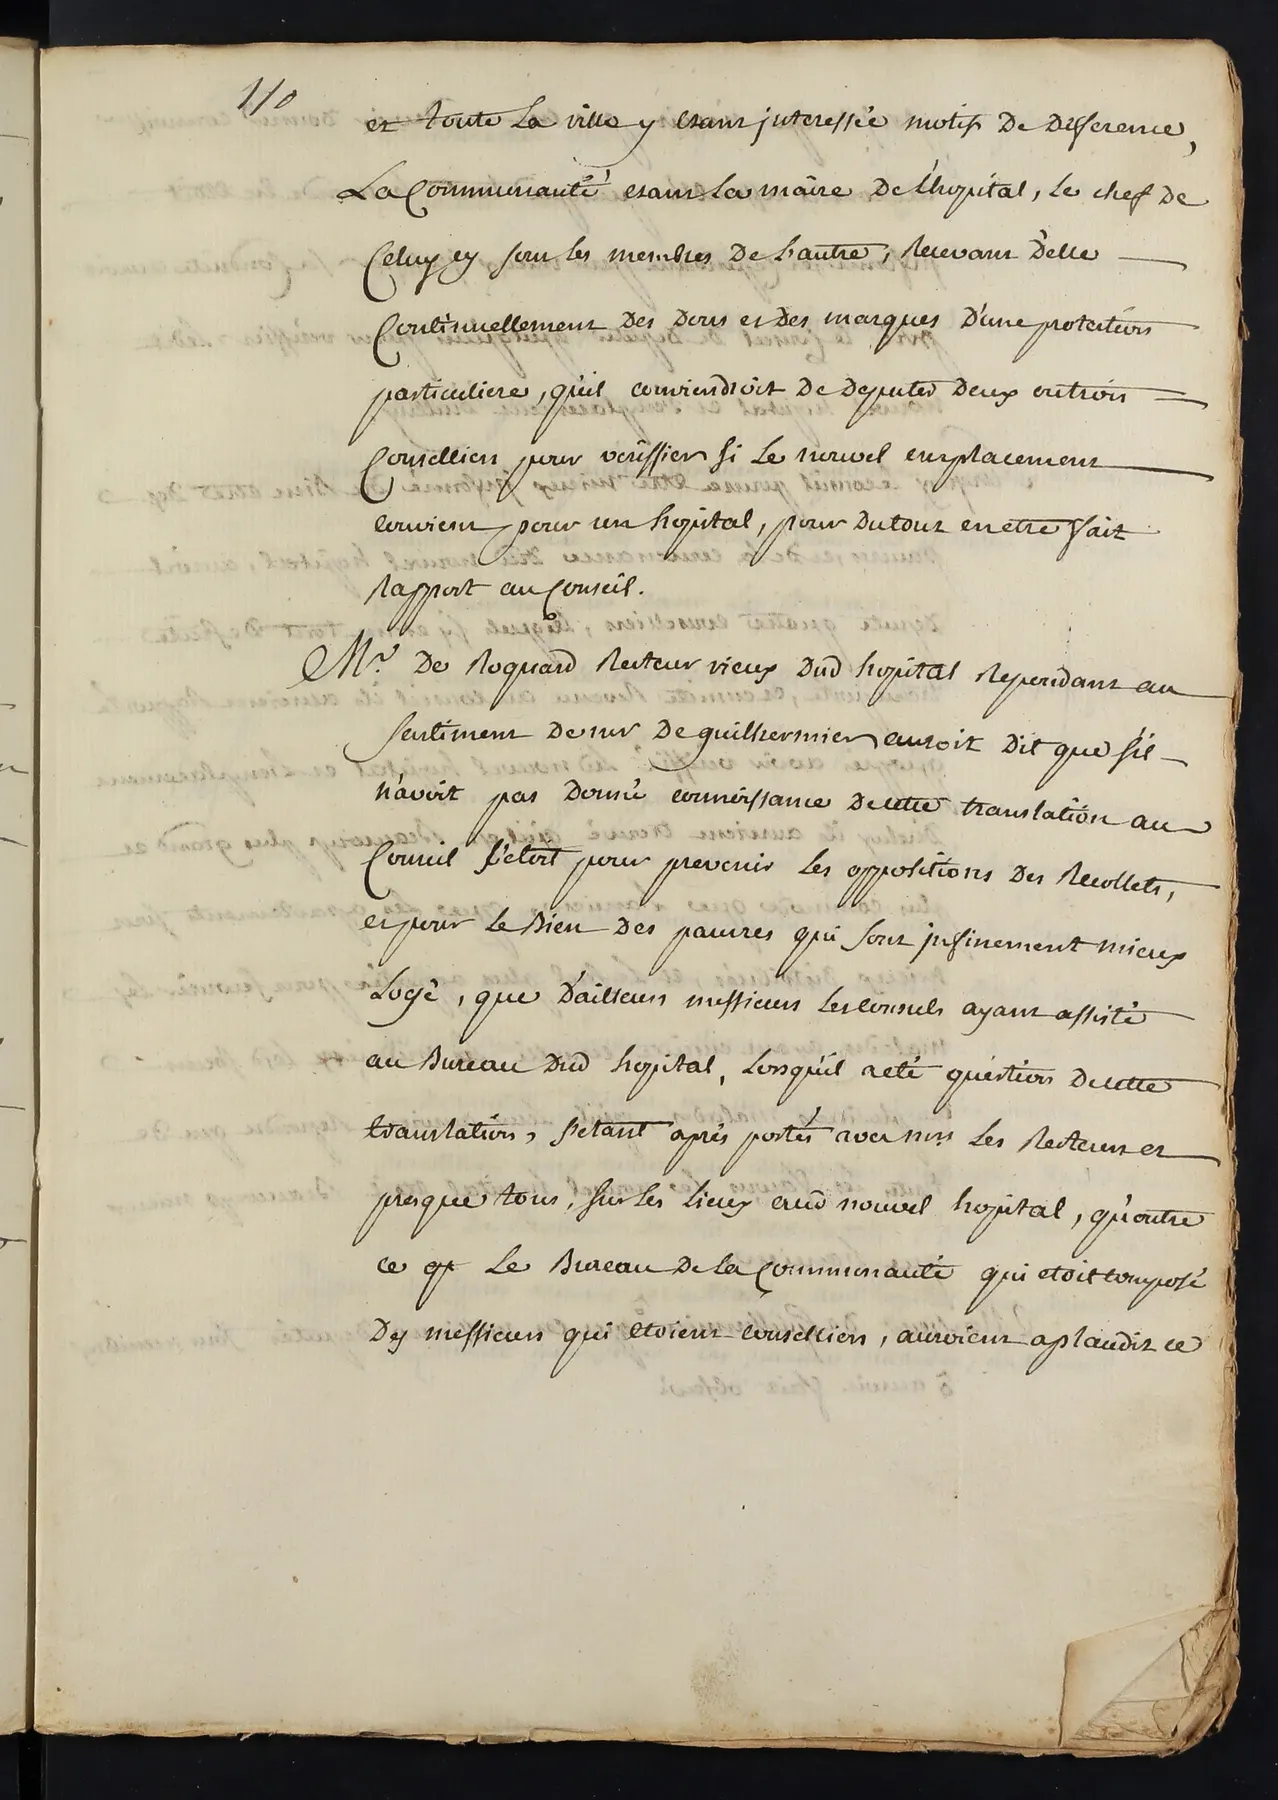 110
et toute La ville y etant jnteressée motif De Deference,
La Communauté etant La maire De L'hopital, Le chef De
Celuy cy sont les membres De L'autre, Recevant D'elle
Continuellement Des Dons et Des marques D'une protection
particuliere, qu'il conviendroit De Deputer Deux outrois
Conseillers pour veriffier si Le nouvel emplacement
convient pour un hopital, pour Dutout en etre fait
Rapport au Conseil.
Mr. De Roquard Recteur vieux Dud hopital Repondant au
sentiment De mr De guilhermier auroit Dit que s'il
n'avoit pas Donné connoissance De cette translation au
Conseil s'etoit pour prevenir Les oppositions Des Recollets,
et pour Le Bien Des pauvres qui sont jnfinement mieux
Logé, que D'ailleurs messieurs Les Consuls ayant assisté
au Bureau Dud hopital, Lorsqu'il a eté question De cette
translation, s'etant aprés portés avec mrs Les Recteurs et
presque tous, sur Les Lieux aud nouvel hopital, qu'outre
ce q̃ Le Bureau De La Communauté qui etoit composé
De messieurs qui etoient conseillers, auroient aplaudit ce